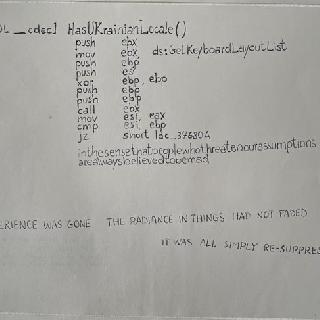 OL __cdecl HasUKrainianLocale()
push ebx
mov ebx, ds:GetKeyboardLayoutList
push ebp
push esi
xor ebp, ebp
push ebp
push ebp
call ebx
mov esi, eax
cmp esi, ebp
jz short loc_37580A
inthesensethatpeoplewhothreatenourassumptions
arealwaysbelievedtobemad
ERIENCE WAS GONE THE RADIANCE IN THINGS HAD NOT FADED
IT WAS ALL SIMPLY RE-SUPPRES